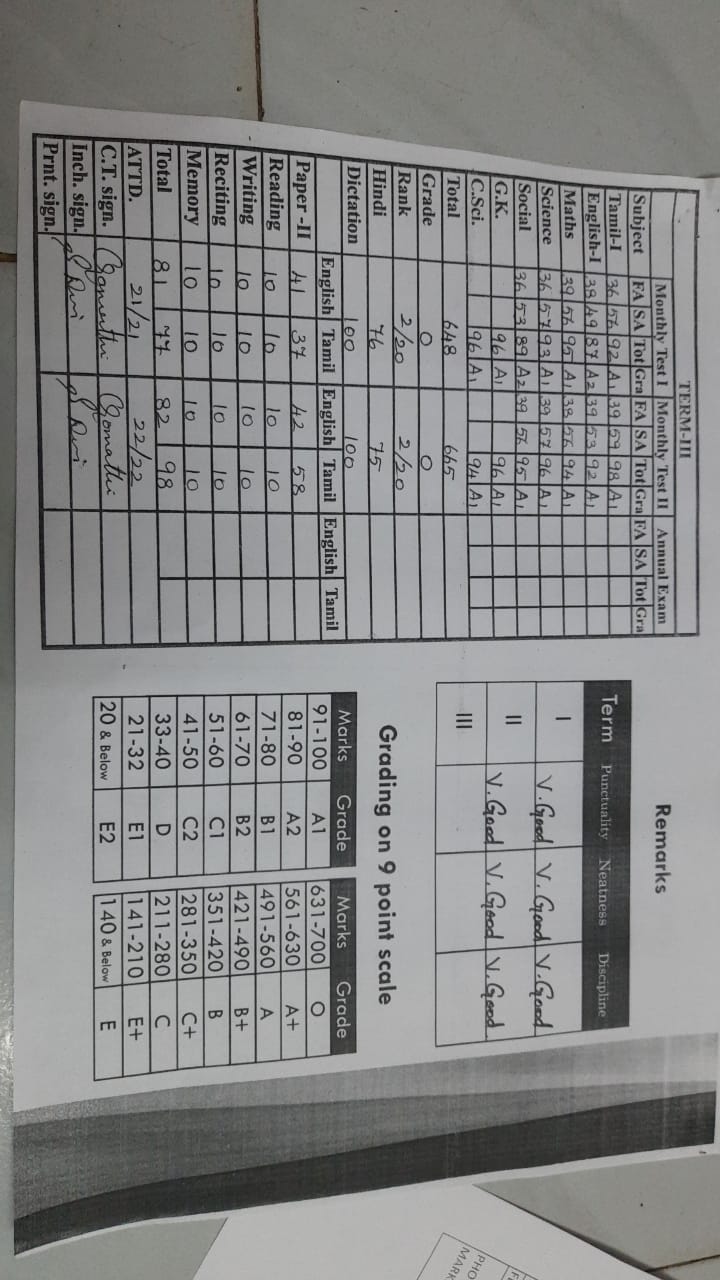 TERM-III
Monthly Test I Monthly Test II Annual Exam
Subject FA SA Tot Gra FA SA Tot Gra FA SA Tot Gra
Tamil-I 36 56 92 A1 39 59 98 A1
English-I 38 49 87 A2 39 53 92 A1
Maths 39 56 95 A1 38 56 94 A1
Science 36 57 93 A1 39 57 96 A1
Social 36 53 89 A2 39 56 95 A1
G.K. 96 A1 96 A1
C.Sci. 96 A1 94 A1
Total 648 665
Grade O O
Rank 2/20 2/20
Hindi 76 75
Dictation 100 100
English Tamil English Tamil English Tamil
Paper -II 41 37 42 58
Reading 10 10 10 10
Writing 10 10 10 10
Reciting 10 10 10 10
Memory 10 10 10 10
Total 81 77 82 98
ATTD. 21/21 22/22
C.T. sign. Gomathi Gomathi
Inch. sign.
Prnt. sign.
Remarks
Term Punctuality Neatness Discipline
I V.Good V.Good V.Good
II V.Good V.Good V.Good
III
Grading on 9 point scale
Marks Grade Marks Grade
91-100 A1 631-700 O
81-90 A2 561-630 A+
71-80 B1 491-560 A
61-70 B2 421-490 B+
51-60 C1 351-420 B
41-50 C2 281-350 C+
33-40 D 211-280 C
21-32 E1 141-210 E+
20 & Below E2 140 & Below E